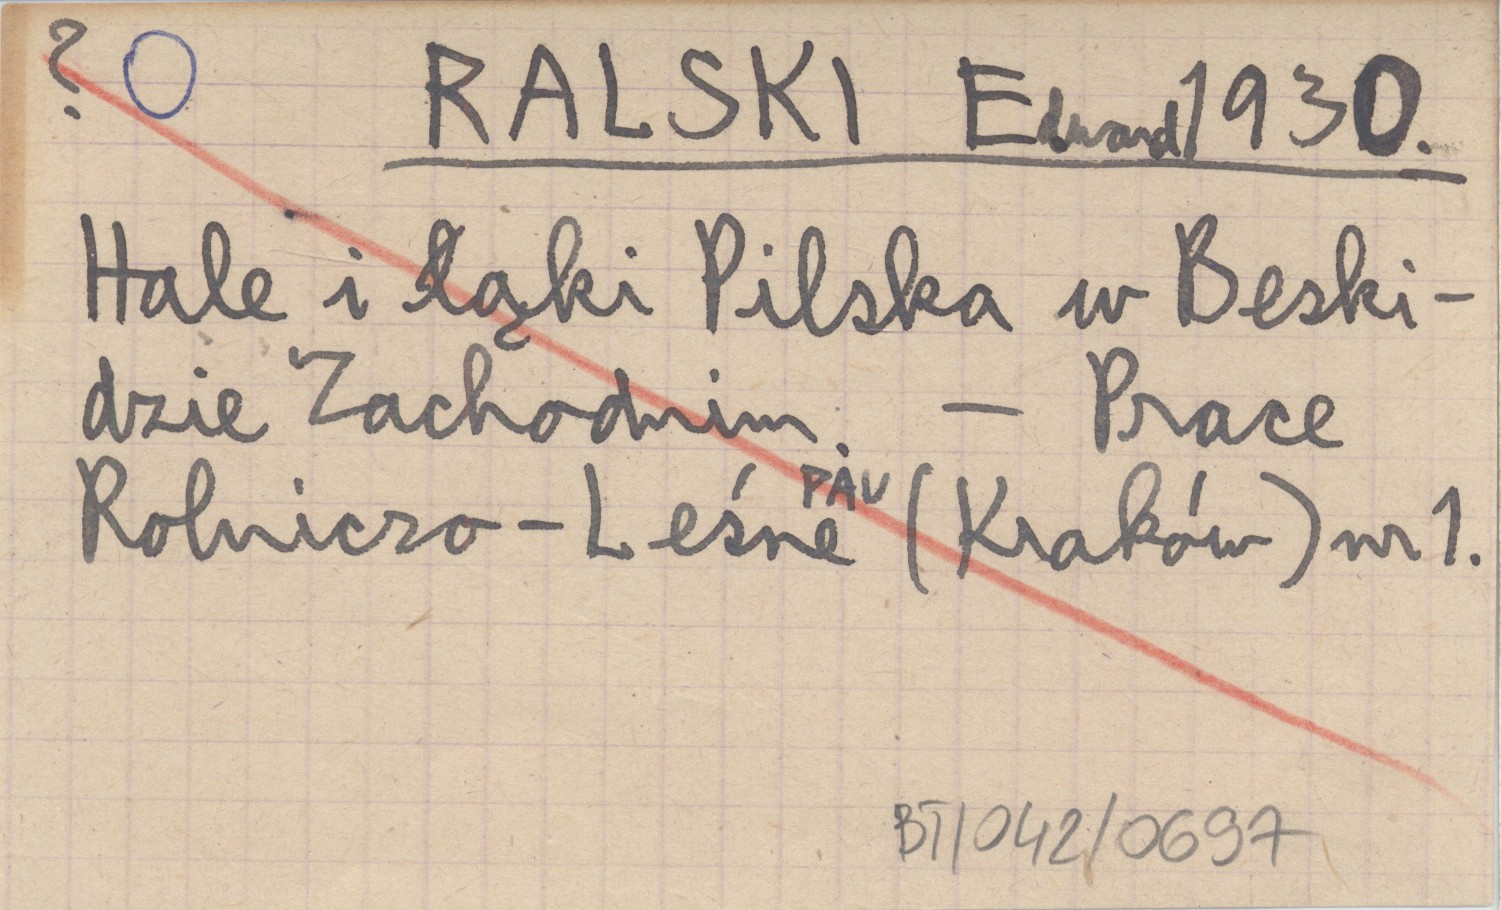 ? O RALSKI Edward 1930.
Hale i łąki Pilska w Beski-
dzie Zachodnim. — Prace
Rolniczo-Leśne PAU (Kraków) nr 1.
BT/042/0697